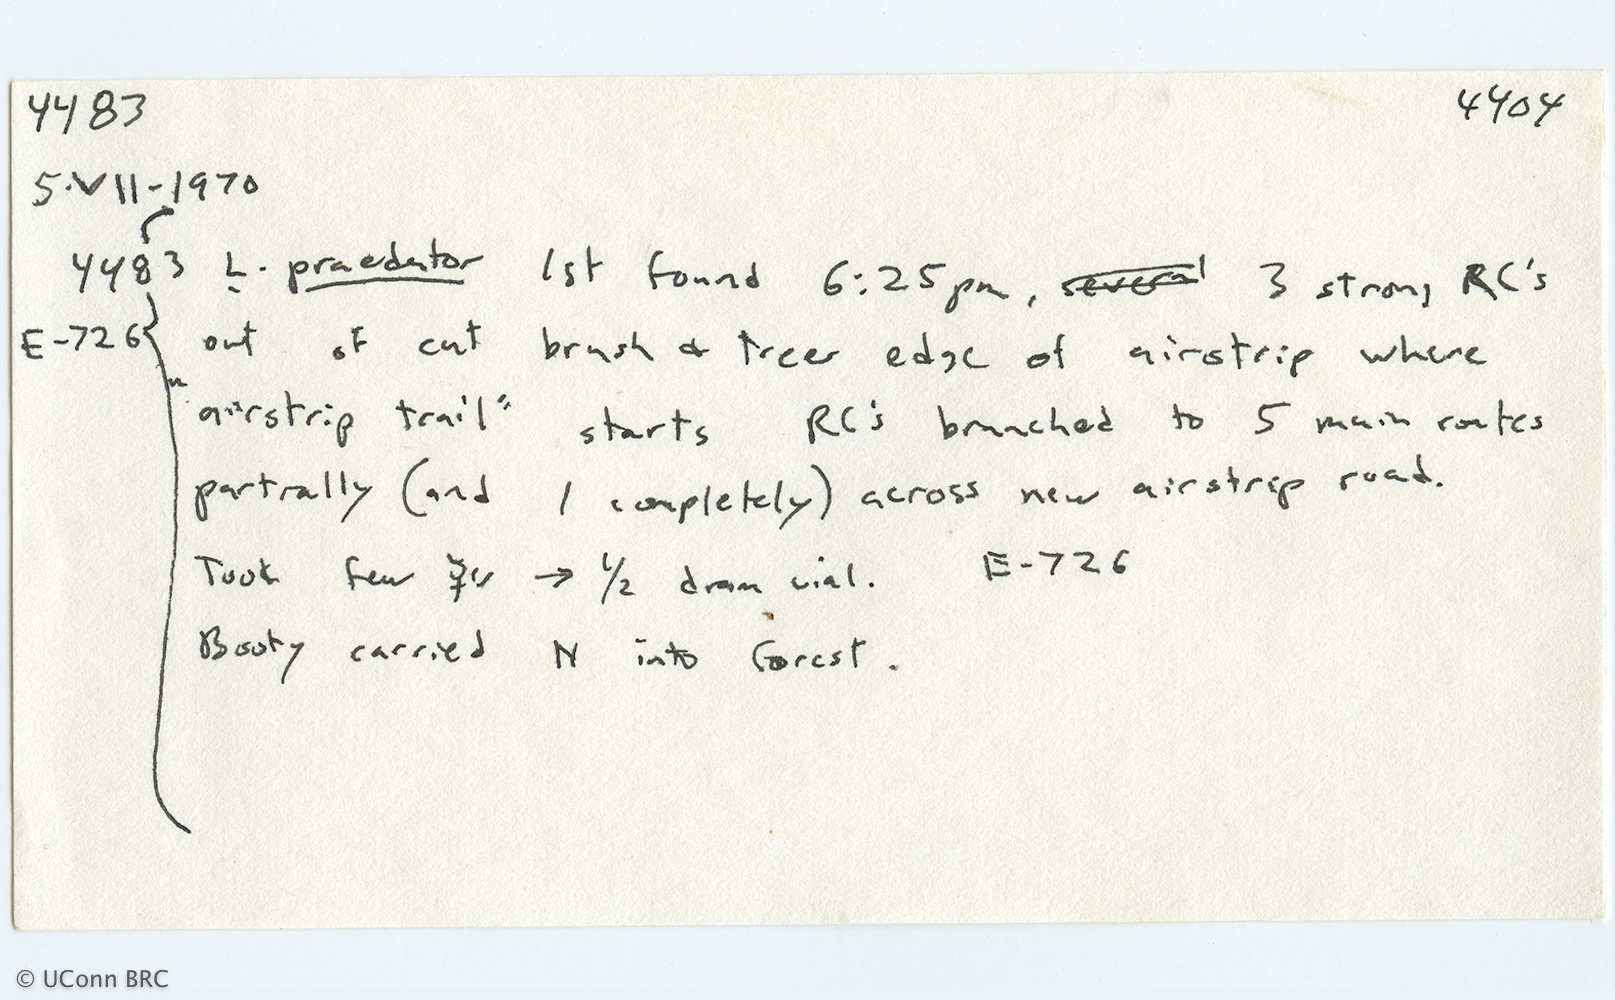 4483 4404
5·VII-1970
4483 L. praedator 1st found 6:25pm, several 3 strong RC's
E-726 out of cut brush & trees edge of airstrip where
"airstrip trail" starts RC's branched to 5 main routes
partially (and 1 completely) across new airstrip road.
Took few → 1/2 dram vial. E-726
Booty carried N into forest.
© UConn BRC